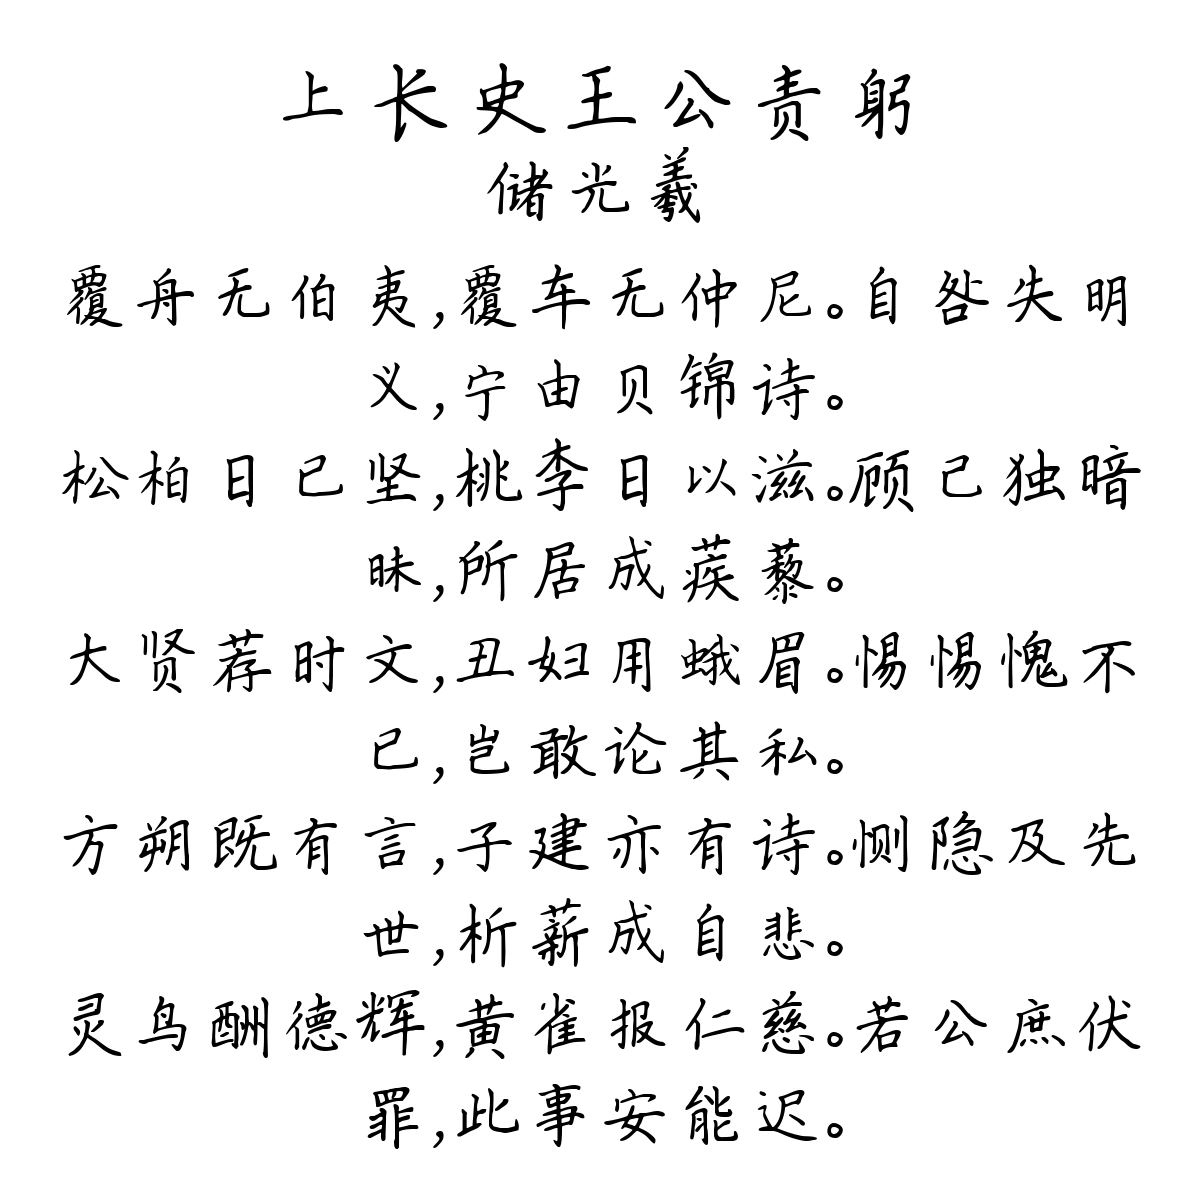 上长史王公责躬
储光羲
覆舟无伯夷,覆车无仲尼。自咎失明
义,宁由贝锦诗。
松柏日已坚,桃李日以滋。顾己独暗
昧,所居成蒺藜。
大贤荐时文,丑妇用蛾眉。惕惕愧不
已,岂敢论其私。
方朔既有言,子建亦有诗。恻隐及先
世,析薪成自悲。
灵鸟酬德辉,黄雀报仁慈。若公庶伏
罪,此事安能迟。